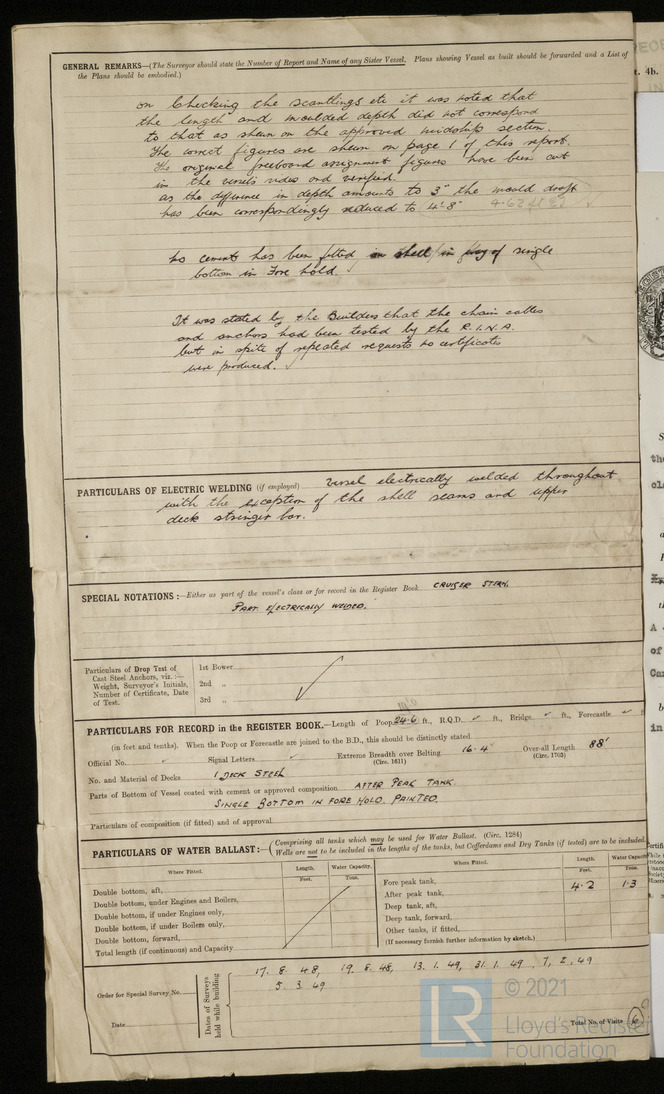 GENERAL REMARKS—(The Surveyor should state the Number of Report and Name of any Sister Vessel. Plans showing Vessel as built should be forwarded and a List of
the Plans should be embodied.)
on checking the scantlings etc it was noted that
the length and moulded depth did not correspond
to that as shewn on the approved midship section.
The correct figures are shewn on page 1 of this report.
The original freeboard assignment figures have been cut
in the vessels sides and verified.
as the difference in depth amounts to 3" the mould draft
has been correspondingly reduced to 4'8"
No cement has been fitted in shell/in way of single
bottom in Fore hold.
It was stated by the Builders that the chain cables
and anchors had been tested by the R.I.N.A.
but in spite of repeated requests no certificates
were produced.
PARTICULARS OF ELECTRIC WELDING (if employed) Vessel electrically welded throughout
with the exception of the shell seams and upper
deck stringer bar.
SPECIAL NOTATIONS:—Either as part of the vessel's class or for record in the Register Book CRUISER STERN.
PART ELECTRICALLY WELDED.
Particulars of Drop Test of
Cast Steel Anchors, viz.:—
Weight, Surveyor's Initials,
Number of Certificate, Date
of Test.
1st Bower
2nd „
3rd „
PARTICULARS FOR RECORD in the REGISTER BOOK.—Length of Poop 24.6 ft., R.Q.D. ✓ ft., Bridge ✓ ft., Forecastle ✓
(in feet and tenths). When the Poop or Forecastle are joined to the B.D., this should be distinctly stated
Official No. Signal Letters Extreme Breadth over Belting 16.4 Over-all Length 88'
(Circ. 1611) (Circ. 1703)
No. and Material of Decks 1 DECK STEEL
Parts of Bottom of Vessel coated with cement or approved composition AFTER PEAK TANK.
SINGLE BOTTOM IN FORE HOLD. PAINTED.
Particulars of composition (if fitted) and of approval
PARTICULARS OF WATER BALLAST:—(Comprising all tanks which may be used for Water Ballast. (Circ. 1284)
Wells are not to be included in the lengths of the tanks, but Cofferdams and Dry Tanks (if tested) are to be included
Where Fitted. Length. Water Capacity. Where Fitted. Length. Water Capacity
Feet. Tons. Feet. Tons.
Double bottom, aft,
Double bottom, under Engines and Boilers,
Double bottom, if under Engines only,
Double bottom, if under Boilers only,
Double bottom, forward,
Total length (if continuous) and Capacity
Fore peak tank,
After peak tank, 4.2 1.3
Deep tank, aft,
Deep tank, forward,
Other tanks, if fitted,
(If necessary furnish further information by sketch.)
Order for Special Survey No.
Date
Dates of Surveys
held while building
17. 8. 48, 19. 8. 48, 13. 1. 49, 31. 1. 49, 7. 2. 49
5. 3. 49
Total No. of Visits 6
LR © 2021
Lloyd's Register
Foundation